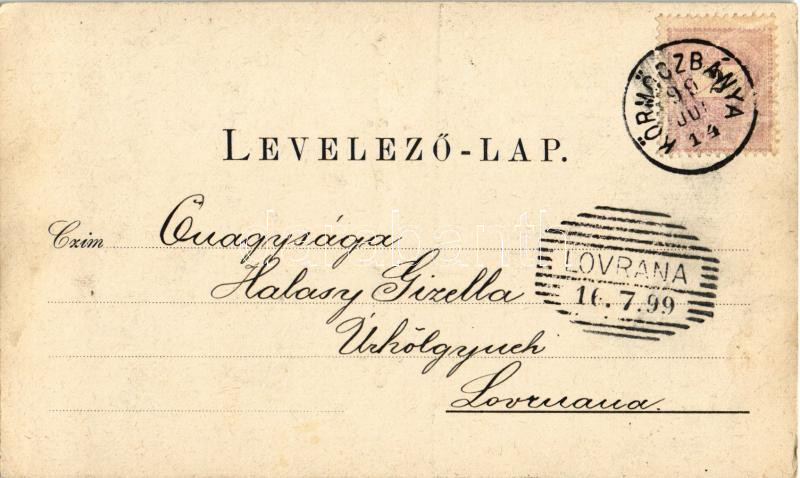 KÖRMÖCZBÁNYA
99
JUL
14
LEVELEZŐ-LAP.
Czim Őnagysága
LOVRANA
16.7.99
Halasy Gizella
Úrhölgynek
Lovrnana.